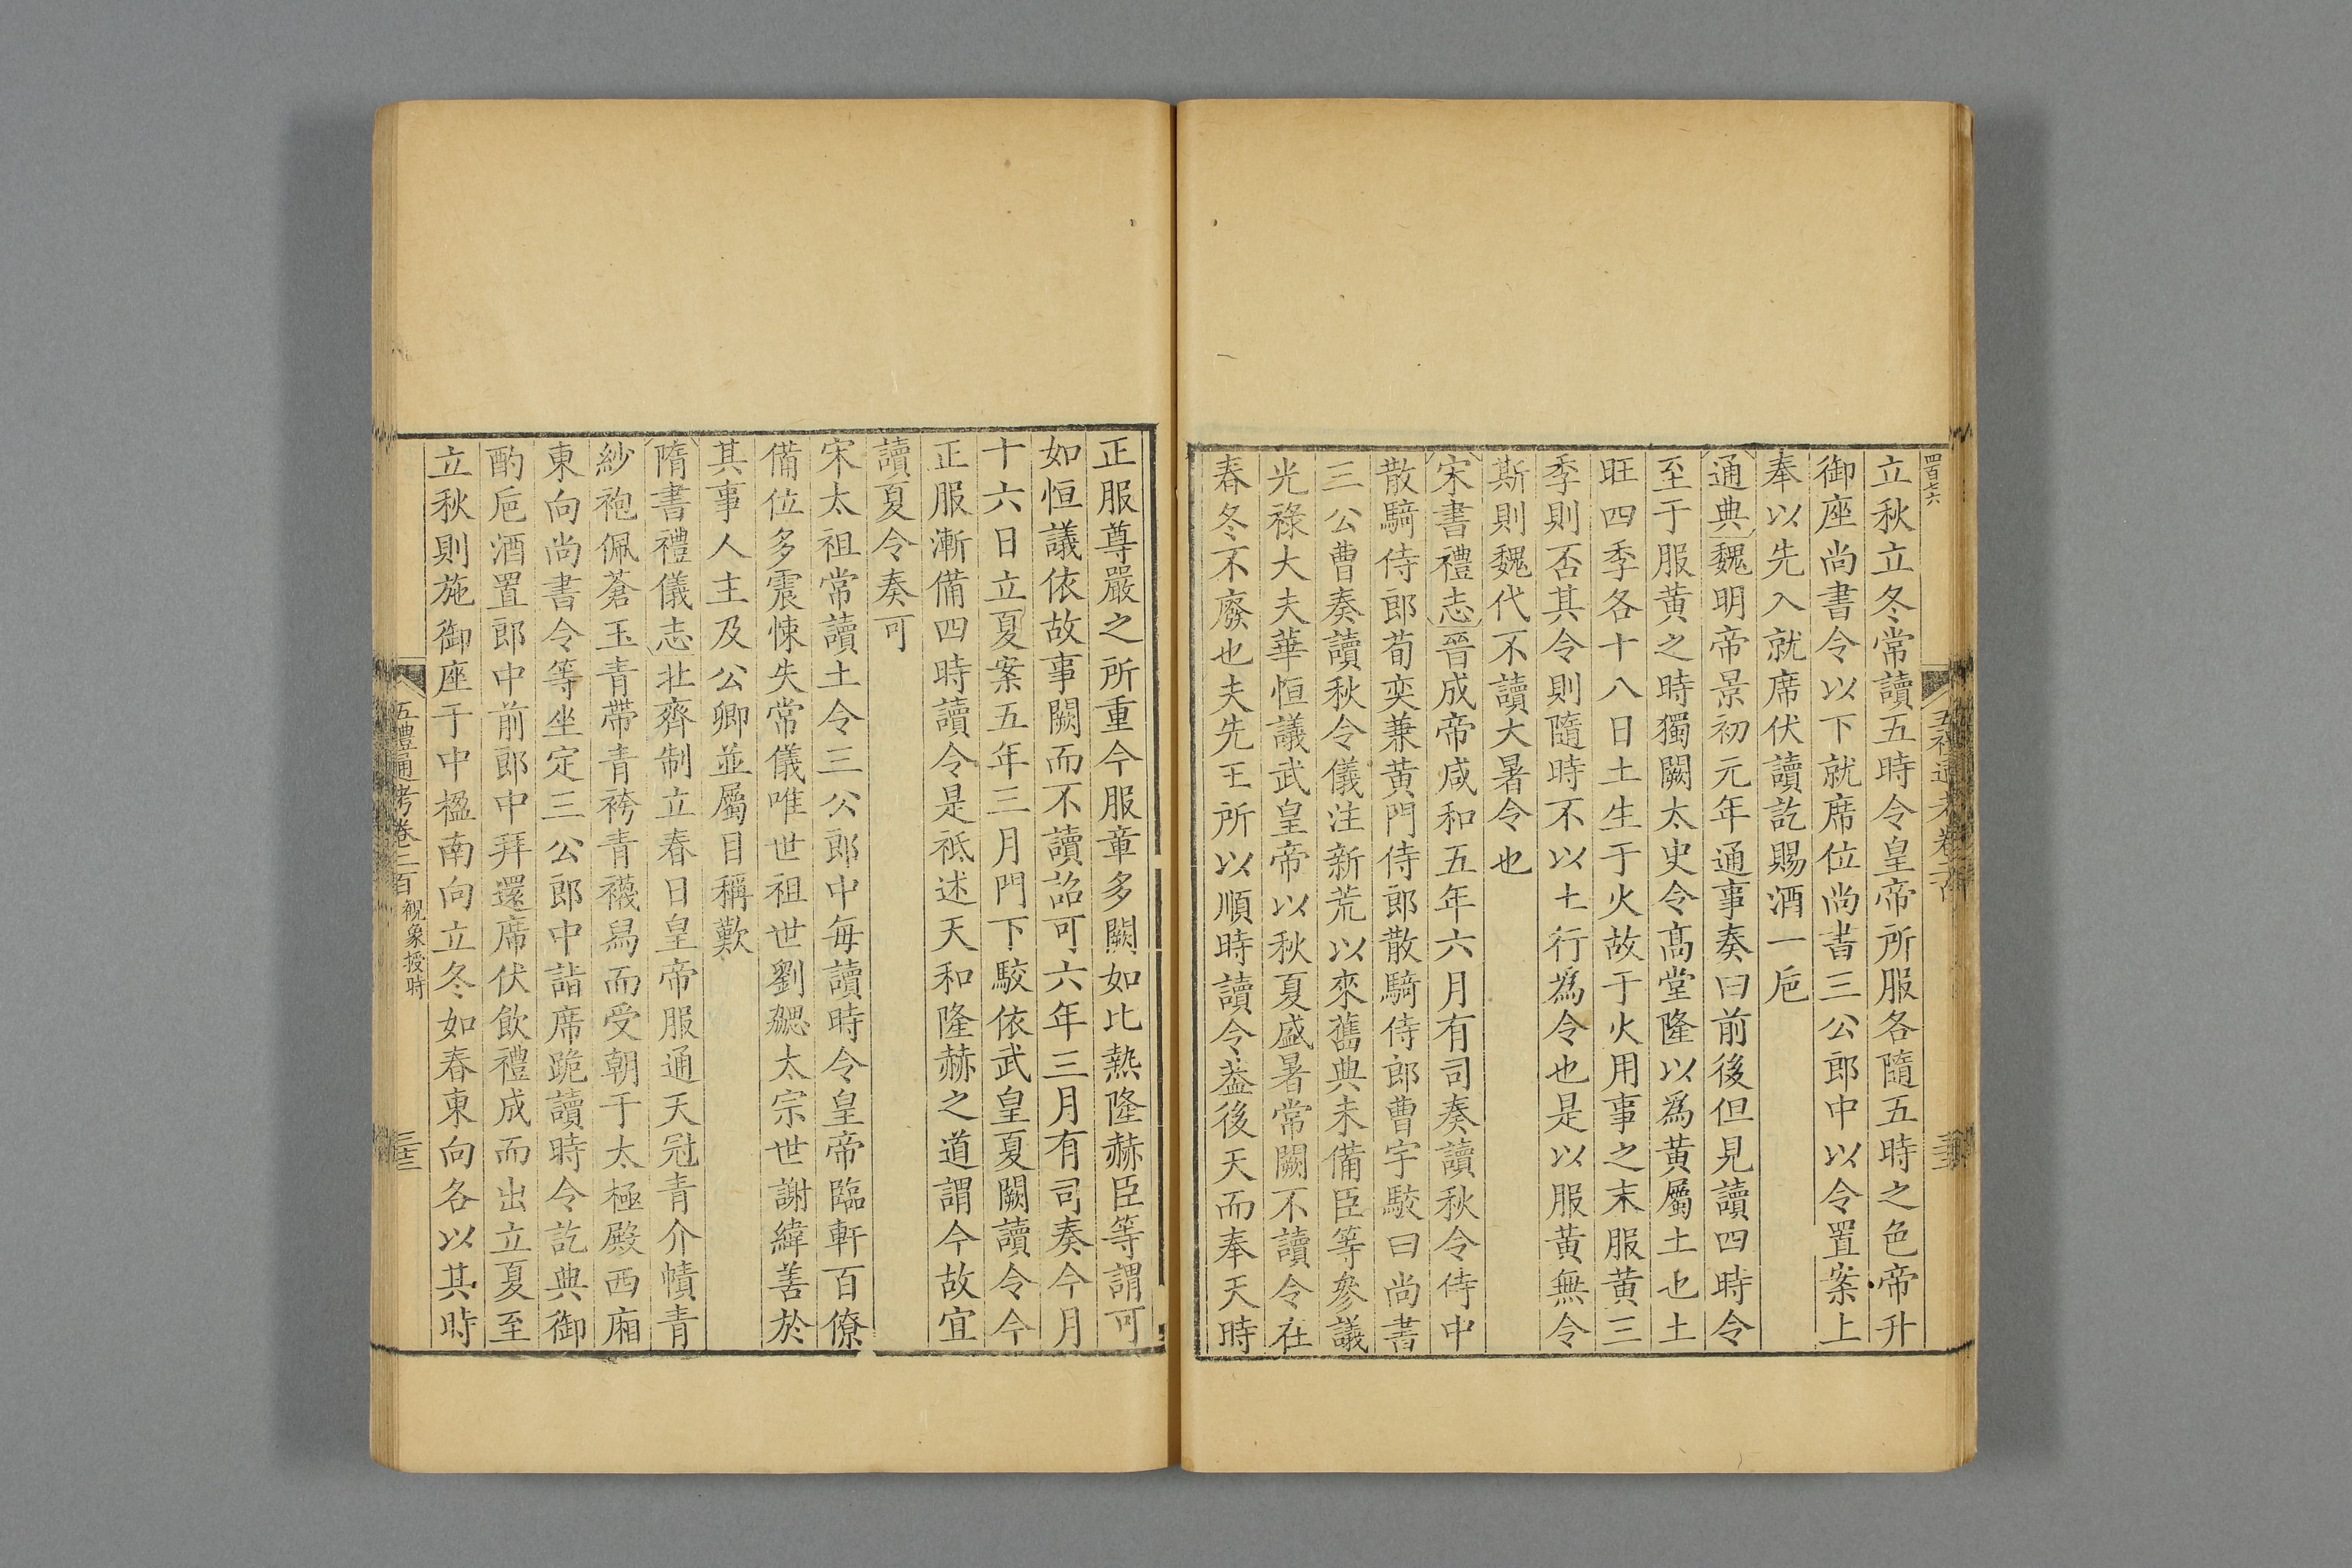 四百七六
立秋立冬常讀五時令皇帝所服各隨五時之色帝升
御座尚書令以下就席位尚書三公郎中以令置案上
奉以先入就席伏讀訖賜酒一卮
通典魏明帝景初元年通事奏曰前後但見讀四時令
至于服黄之時獨闕太史令髙堂隆以為黄屬土也土
旺四季各十八日土生于火故于火用事之末服黄三
季則否其令則隨時不以土行為令也是以服黄無令
斯則魏代不讀大暑令也
宋書禮志晉成帝咸和五年六月有司奏讀秋令侍中
散騎侍郎荀奕兼黄門侍郎散騎侍郎曹宇駮曰尚書
三公曹奏讀秋令儀注新荒以來舊典未備臣等參議
光祿大夫華恒議武皇帝以秋夏盛暑常闕不讀令在
春冬不廢也夫先王所以順時讀令葢後天而奉天時
正服尊嚴之所重今服章多闕如比熱隆赫臣等謂可
如恒議依故事闕而不讀詔可六年三月有司奏今月
十六日立夏案五年三月門下駮依武皇夏闕讀令今
正服漸備四時讀令是祗述天和隆赫之道謂今故宜
讀夏令奏可
宋太祖常讀土令三公郎中每讀時令皇帝臨軒百僚
備位多震悚失常儀唯世祖世劉勰太宗世謝緯善於
其事人主及公卿並屬目稱歎
隋書禮儀志北齊制立春日皇帝服通天冠青介幘青
紗袍佩蒼玉青帶青袴青襪舄而受朝于太極殿西廂
東向尚書令等坐定三公郎中詣席跪讀時令訖典御
酌卮酒置郎中前郎中拜還席伏飲禮成而出立夏至
立秋則施御座于中楹南向立冬如春東向各以其時
五禮通考卷二百 觀象授時
三十三